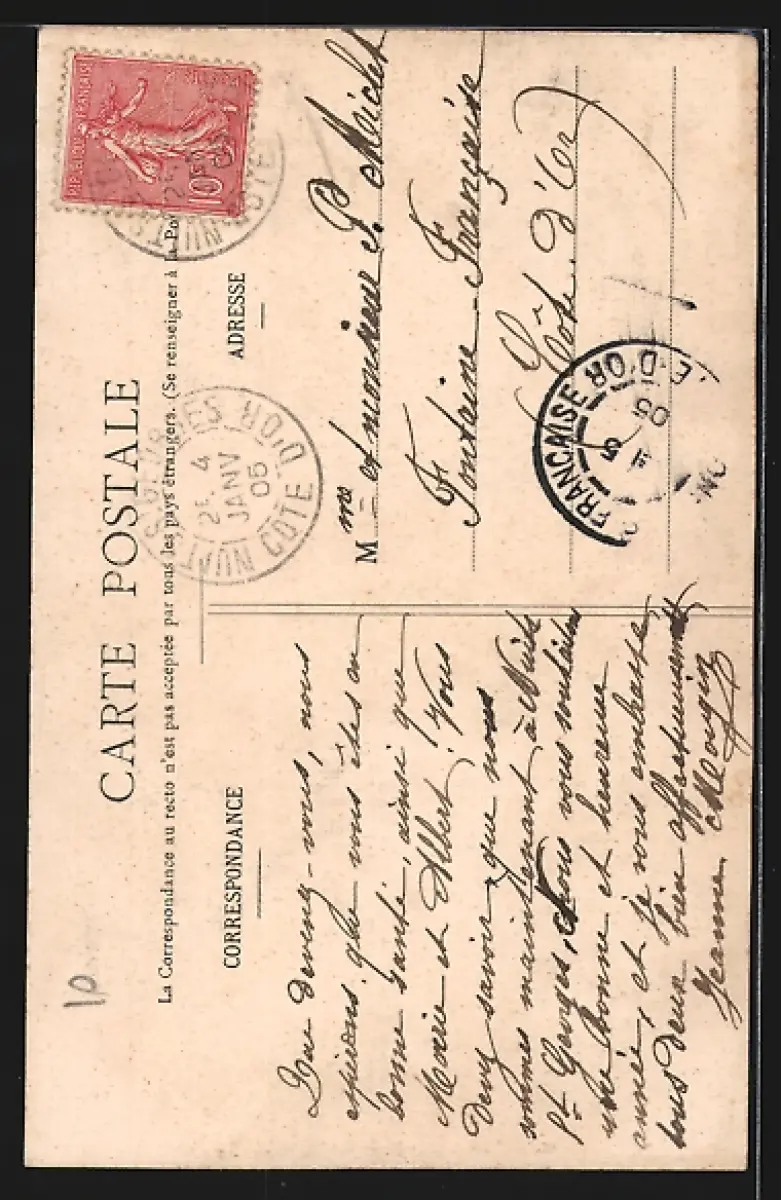 CARTE POSTALE
La Correspondance au recto n'est pas acceptée par tous les pays étrangers. (Se renseigner à la Po
CORRESPONDANCE
Que devenez-vous, nous
espérons que vous êtes en
bonne santé, ainsi que
Marie et Albert. Vous
devez savoir que nous
sommes maintenant à Nuits
St Georges, Nous vous souhaitons
une bonne et heureuse
année, et je vous embrasse
tous deux bien affectueusement
Jeanne Mougin
ADRESSE
Mme et monsieur P. Michel
Fontaine-Française
Côte d'Or
REPUBLIQUE FRANÇAISE
POSTES
10
NUITS
CÔTE
NUITS-S-GEORGES
2E 4
JANV
05
CÔTE D'OR
FRANÇAISE
5
05
E D'OR
10